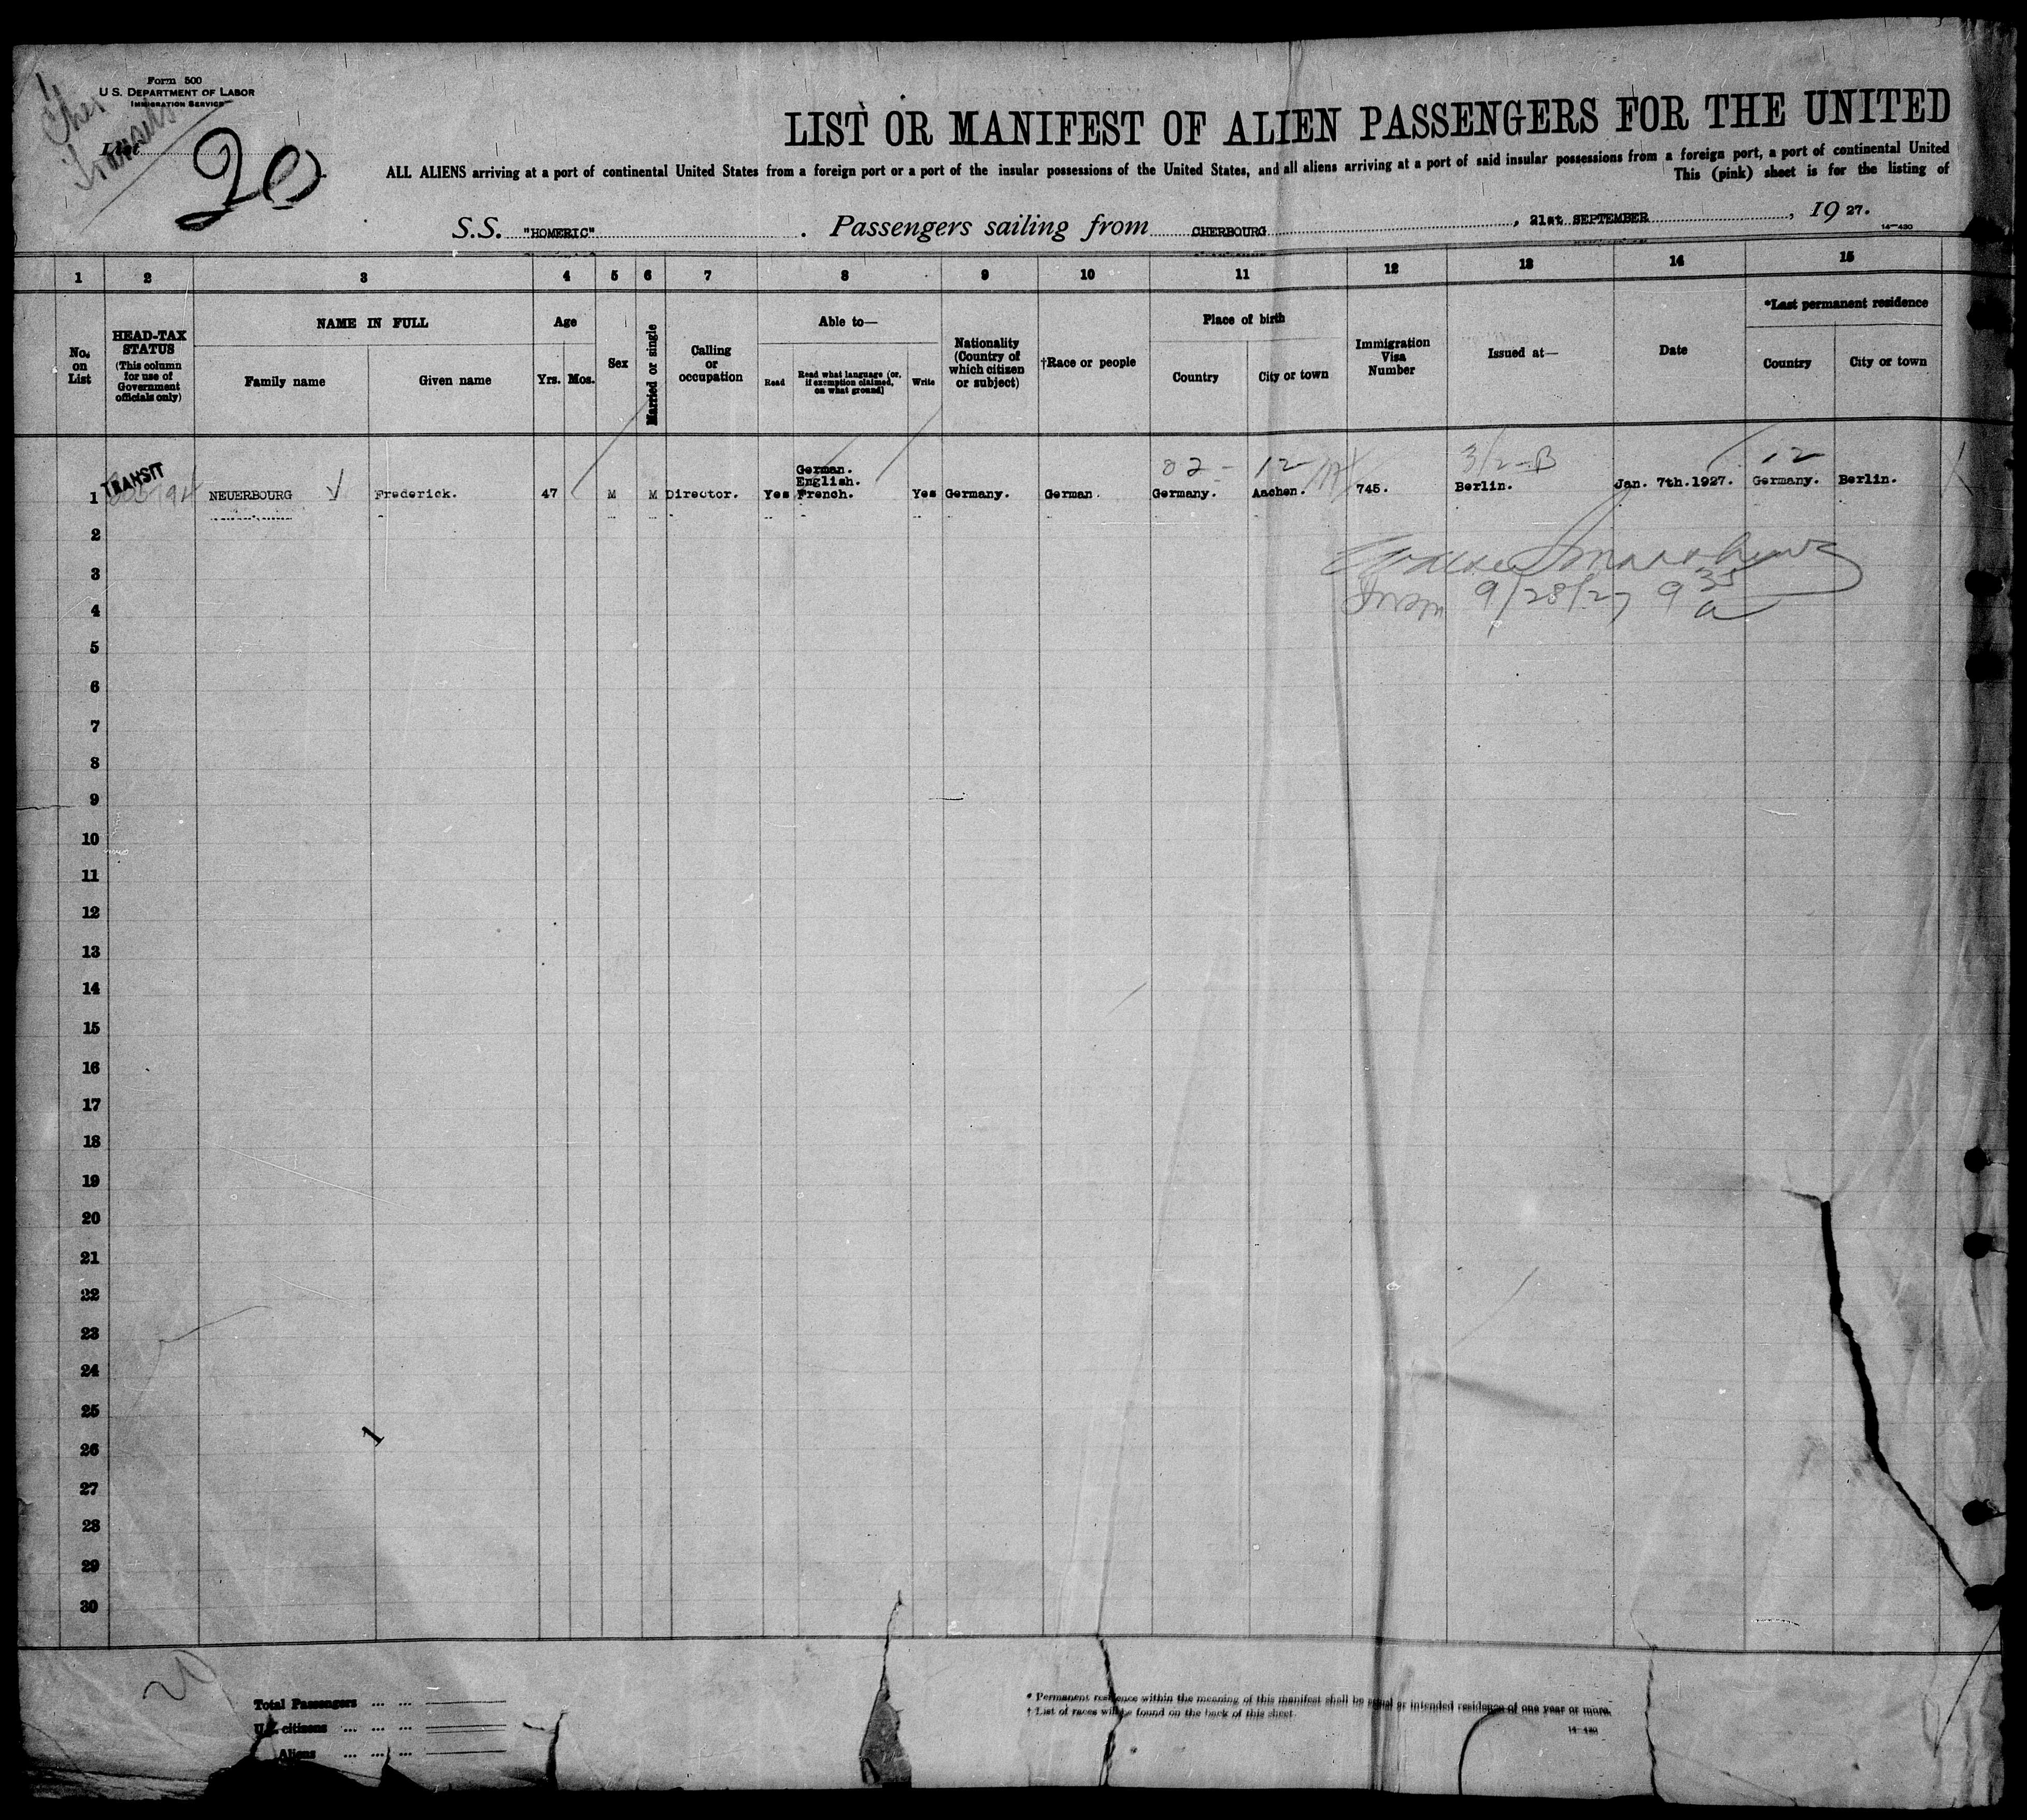 Form 500
U. S. DEPARTMENT OF LABOR
IMMIGRATION SERVICE
Cher
Transits
List
20
LIST OR MANIFEST OF ALIEN PASSENGERS FOR THE UNITED
ALL ALIENS arriving at a port of continental United States from a foreign port or a port of the insular possessions of the United States, and all aliens arriving at a port of said insular possessions from a foreign port, a port of continental United
This (pink) sheet is for the listing of
S.S. "HOMERIC" . Passengers sailing from CHERBOURG , 21st SEPTEMBER , 19 27.
14—430
1 2 3 4 5 6 7 8 9 10 11 12 13 14 15
No. on List
HEAD-TAX STATUS (This column for use of Government officials only)
NAME IN FULL
Family name
Given name
Age
Yrs. Mos.
Sex
Married or single
Calling or occupation
Able to—
Read
Read what language (or, if exemption claimed, on what ground)
Write
Nationality (Country of which citizen or subject)
†Race or people
Place of birth
Country
City or town
Immigration Visa Number
Issued at—
Date
*Last permanent residence
Country
City or town
TRANSIT
German.
English.
02 - 12
3/2-B
12
1 NEUERBOURG Frederick. 47 M M Director. Yes French. Yes Germany. German. Germany. Aachen. 745. Berlin. Jan. 7th.1927. Germany. Berlin.
2
3
4
9/28/27 9 35 a
5
6
7
8
9
10
11
12
13
14
15
16
17
18
19
20
21
22
23
24
25
26
1
27
28
29
30
20
Total Passengers ... ...
U.S. citizens ... ... ...
Aliens ... ... ...
* Permanent residence within the meaning of this manifest shall be actual or intended residence of one year or more.
† List of races will be found on the back of this sheet.
14—430